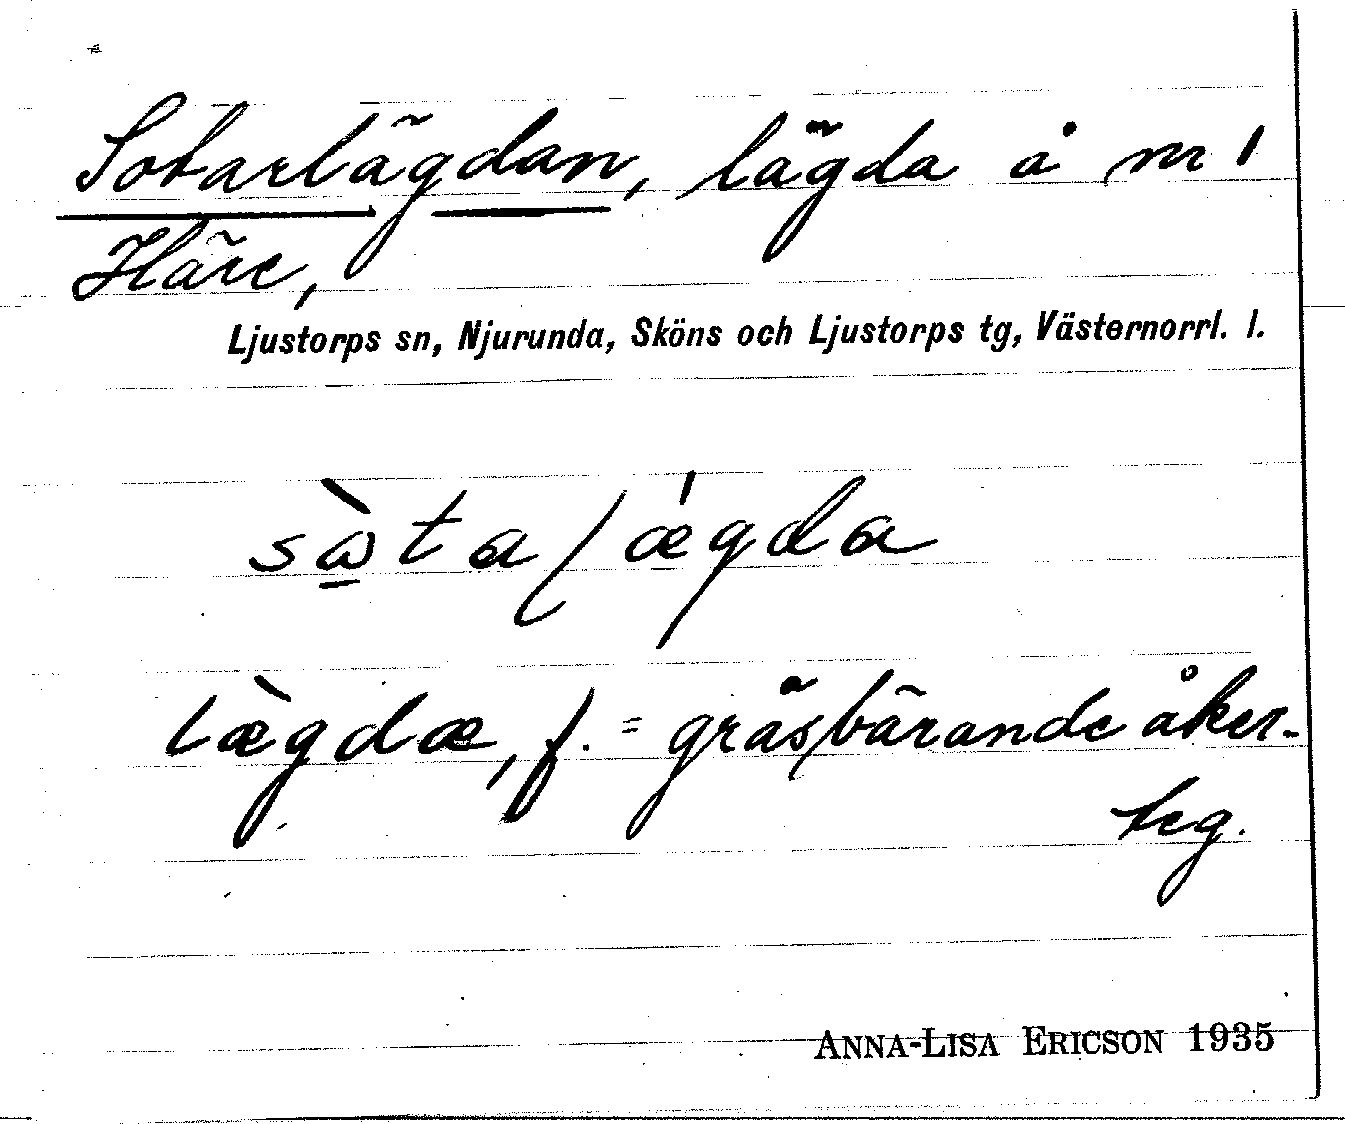 Sotarlägdan, lägda å nr 1
Häre,
Ljustorps sn, Njurunda, Sköns och Ljustorps tg, Västernorrl. l.
sὼ̱talǽgda
læ̀gdæ, f. = gräsbärande åker-
teg.
ANNA-LISA ERICSON 1935